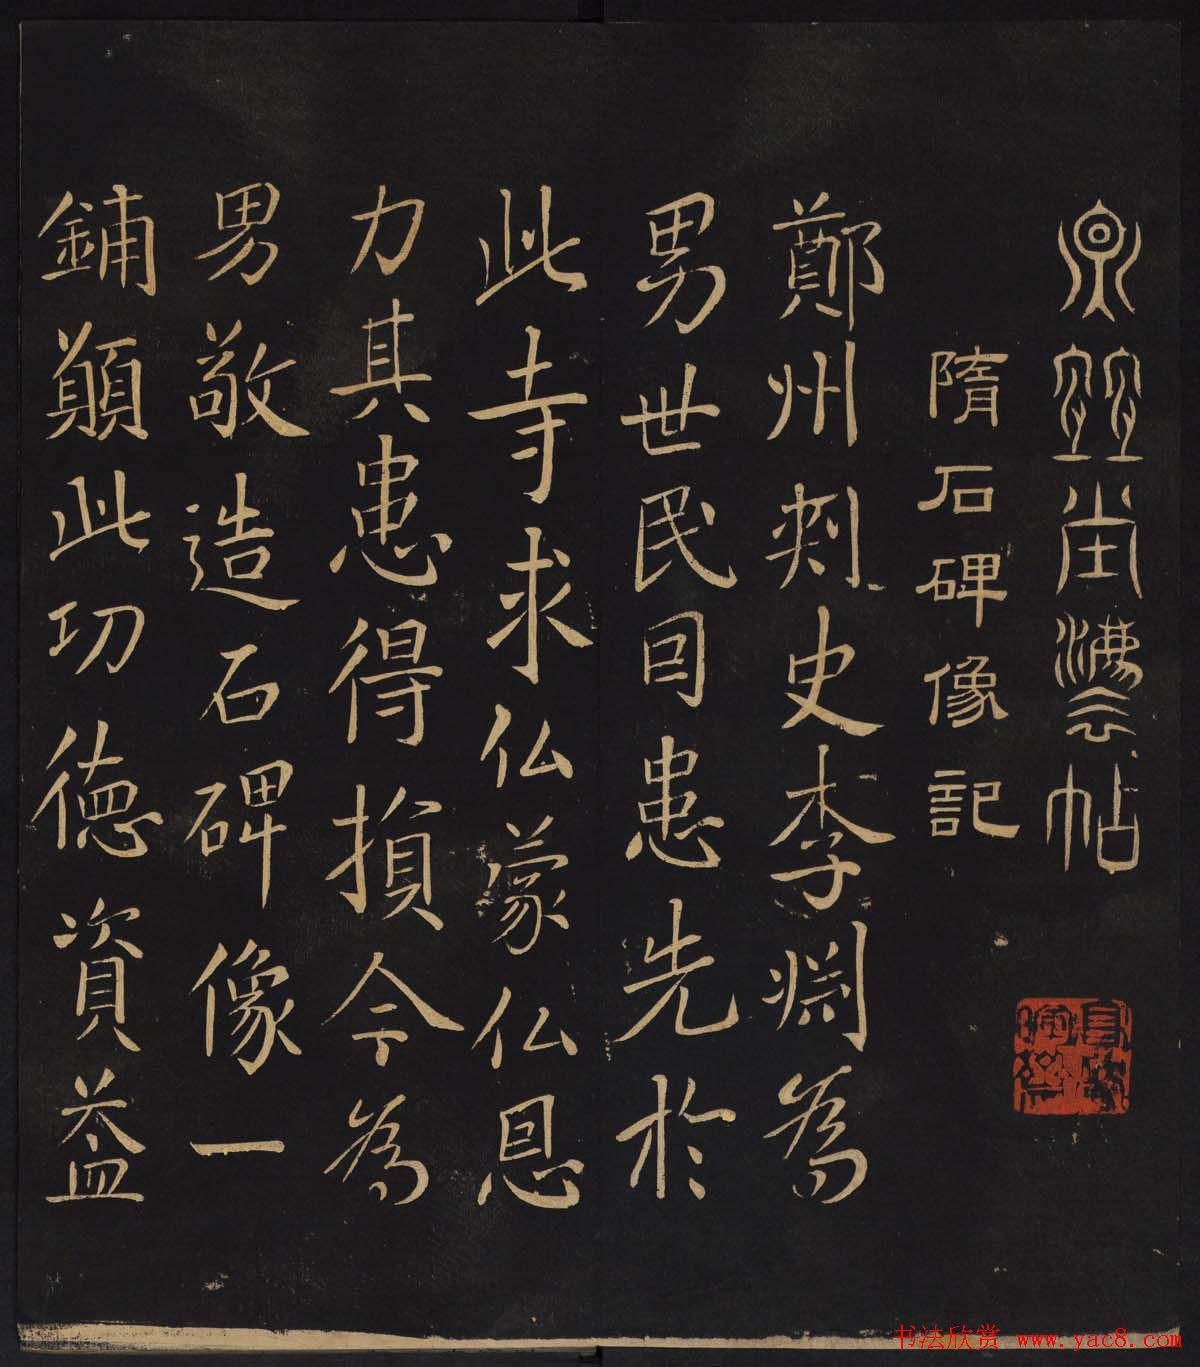 帖
隋石碑像記
鄭州刾史李渕為
男世民因患先於
此寺求仏蒙仏恩
力其患得損今為
男敬造石碑像一
鋪願此功德資益
书法欣赏 www.yac8.com